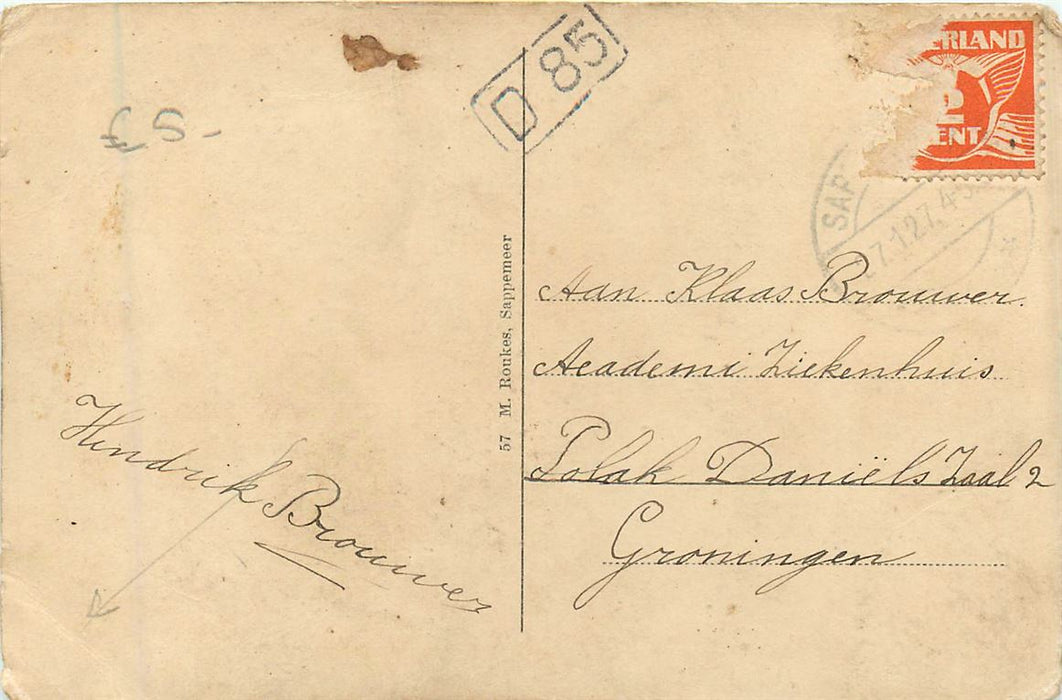 D 85
£ 5-
ERLAND
2
ENT
SAP
7.1.27.4-5
57 M. Roukes, Sappemeer
Aan Klaas Brouwer.
Academi Ziekenhuis
Polak Daniëls Zaal 2
Groningen
Hendrik Brouwer